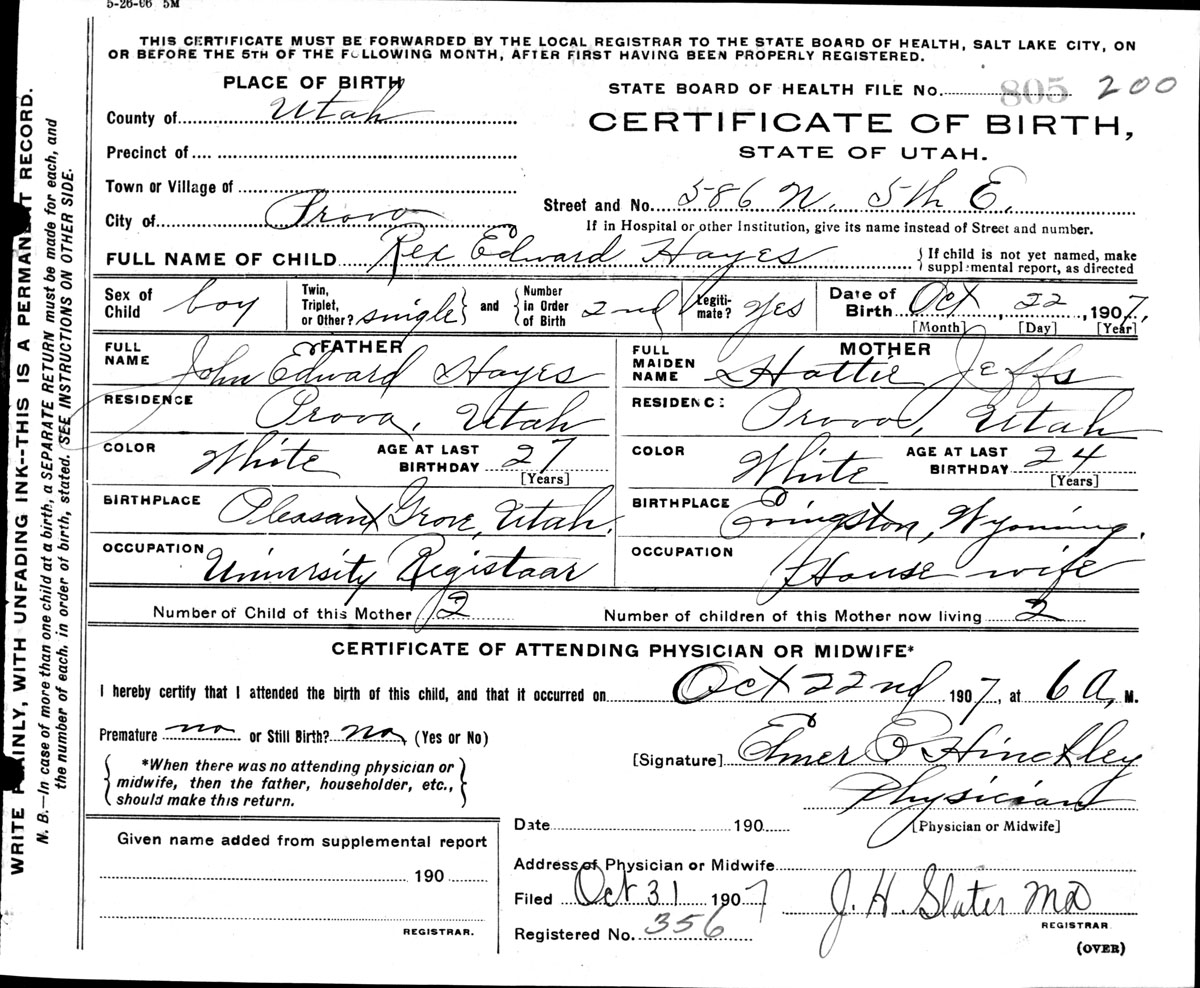 5-26-06 5M
THIS CERTIFICATE MUST BE FORWARDED BY THE LOCAL REGISTRAR TO THE STATE BOARD OF HEALTH, SALT LAKE CITY, ON
OR BEFORE THE 5TH OF THE FOLLOWING MONTH, AFTER FIRST HAVING BEEN PROPERLY REGISTERED.
PLACE OF BIRTH
STATE BOARD OF HEALTH FILE No. 805 200
County of Utah
CERTIFICATE OF BIRTH,
STATE OF UTAH.
Precinct of
Town or Village of
Street and No. 586 N. 5th E.
City of Provo
If in Hospital or other Institution, give its name instead of Street and number.
FULL NAME OF CHILD Rex Edward Hayes
If child is not yet named, make
supplemental report, as directed
Sex of Child boy
Twin, Triplet, or Other? single
and Number in Order of Birth 2nd
Legiti-mate? Yes
Date of Birth Oct, 22, 1907,
[Month] [Day] [Year]
FATHER
FULL NAME John Edward Hayes
RESIDENCE Provo, Utah
COLOR White AGE AT LAST BIRTHDAY 27
[Years]
BIRTHPLACE Pleasant Grove, Utah.
OCCUPATION University Registaar
MOTHER
FULL MAIDEN NAME Hattie Jeffs
RESIDENC: Provo, Utah
COLOR White AGE AT LAST BIRTHDAY 24
[Years]
BIRTHPLACE Evingston, Wyoming.
OCCUPATION House wife
Number of Child of this Mother 2
Number of children of this Mother now living 2
CERTIFICATE OF ATTENDING PHYSICIAN OR MIDWIFE*
I hereby certify that I attended the birth of this child, and that it occurred on Oct 22nd 1907, at 6 A, M.
Premature no or Still Birth? no (Yes or No)
*When there was no attending physician or
midwife, then the father, householder, etc.,
should make this return.
[Signature] Elmer E Hinckley
Physician
[Physician or Midwife]
Date 190
Given name added from supplemental report
190
REGISTRAR.
Address of Physician or Midwife
Filed Oct 31 1907 J. H. Slater MD
REGISTRAR
Registered No. 356
(OVER)
WRITE PLAINLY, WITH UNFADING INK--THIS IS A PERMANENT RECORD.
N. B.—In case of more than one child at a birth, a SEPARATE RETURN must be made for each, and
the number of each. in order of birth, stated. SEE INSTRUCTIONS ON OTHER SIDE.